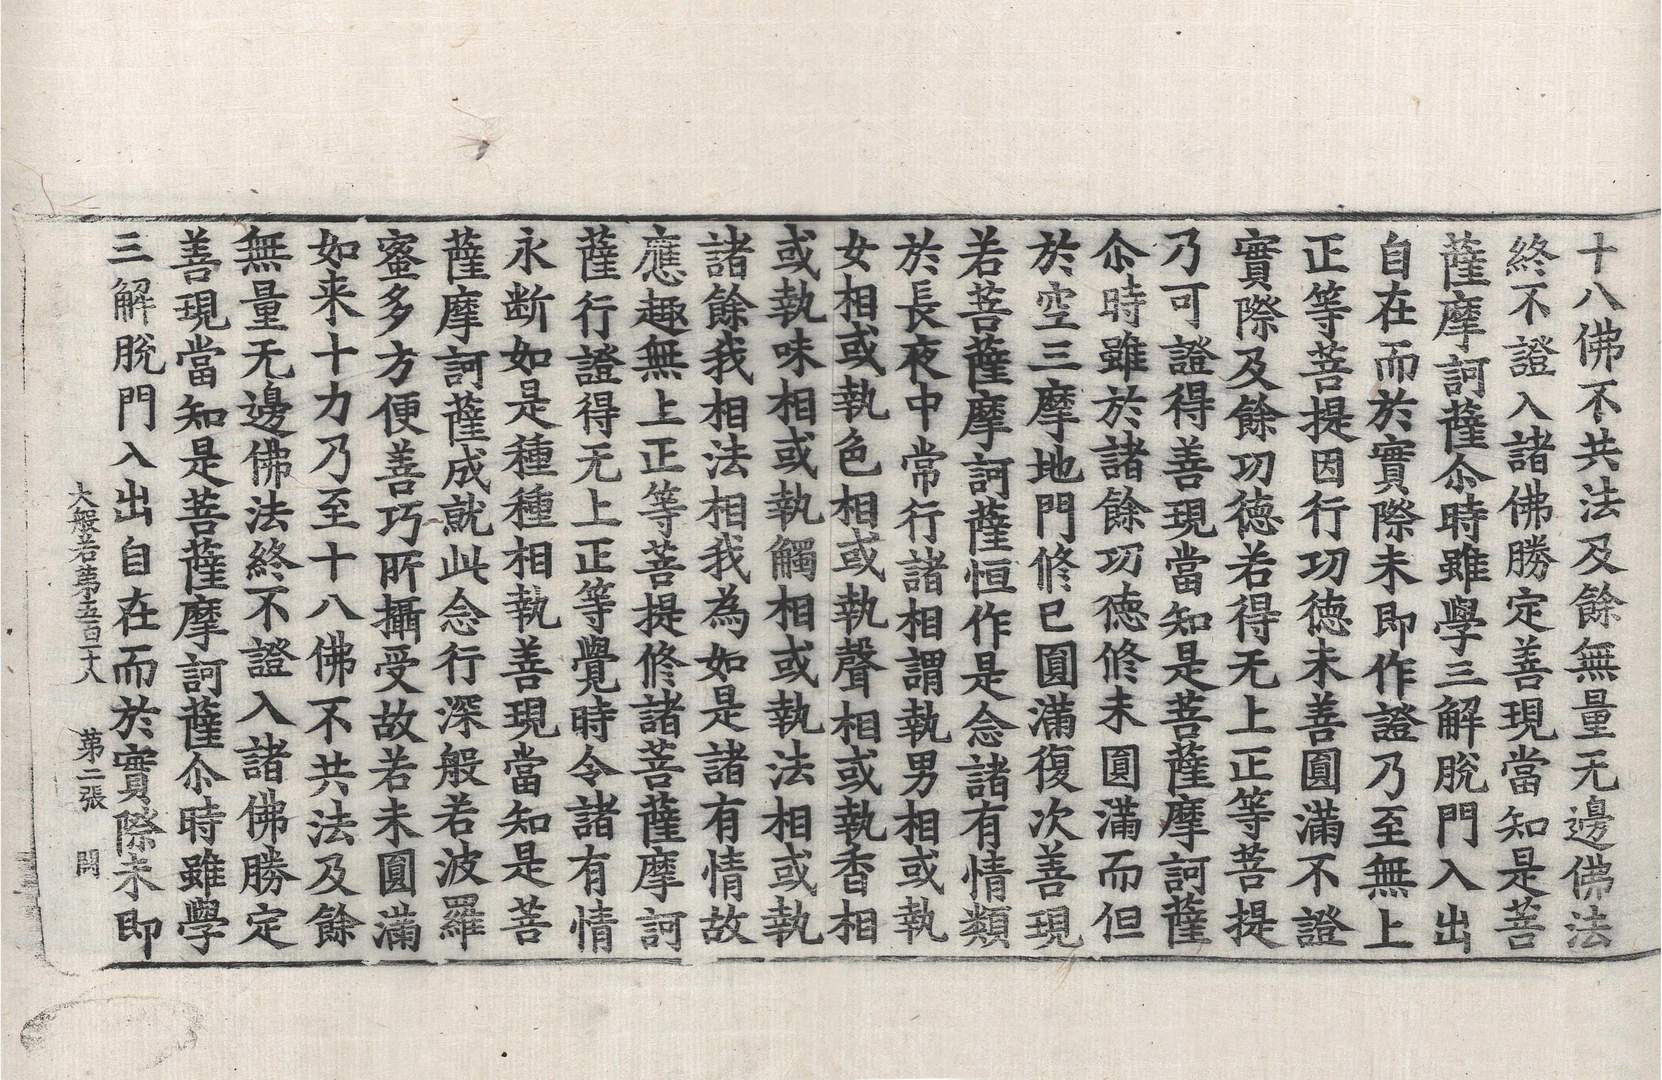 十八佛不共法及餘無量无邊佛法
終不證入諸佛勝定善現當知是菩
薩摩訶薩尒時雖學三解脫門入出
自在而於實際未即作證乃至無上
正等菩提因行功德未善圓滿不證
實際及餘功德若得无上正等菩提
乃可證得善現當知是菩薩摩訶薩
尒時雖於諸餘功德修未圓滿而但
於空三摩地門修已圓滿復次善現
若菩薩摩訶薩恒作是念諸有情類
於長夜中常行諸相謂執男相或執
女相或執色相或執聲相或執香相
或執味相或執觸相或執法相或執
諸餘我相法相我為如是諸有情故
應趣無上正等菩提修諸菩薩摩訶
薩行證得无上正等覺時令諸有情
永断如是種種相執善現當知是菩
薩摩訶薩成就此念行深般若波羅
蜜多方便善巧所攝受故若未圓滿
如来十力乃至十八佛不共法及餘
無量无邊佛法終不證入諸佛勝定
善現當知是菩薩摩訶薩尒時雖學
三解脫門入出自在而於實際未即
大般若第五百十八 第二張 閏